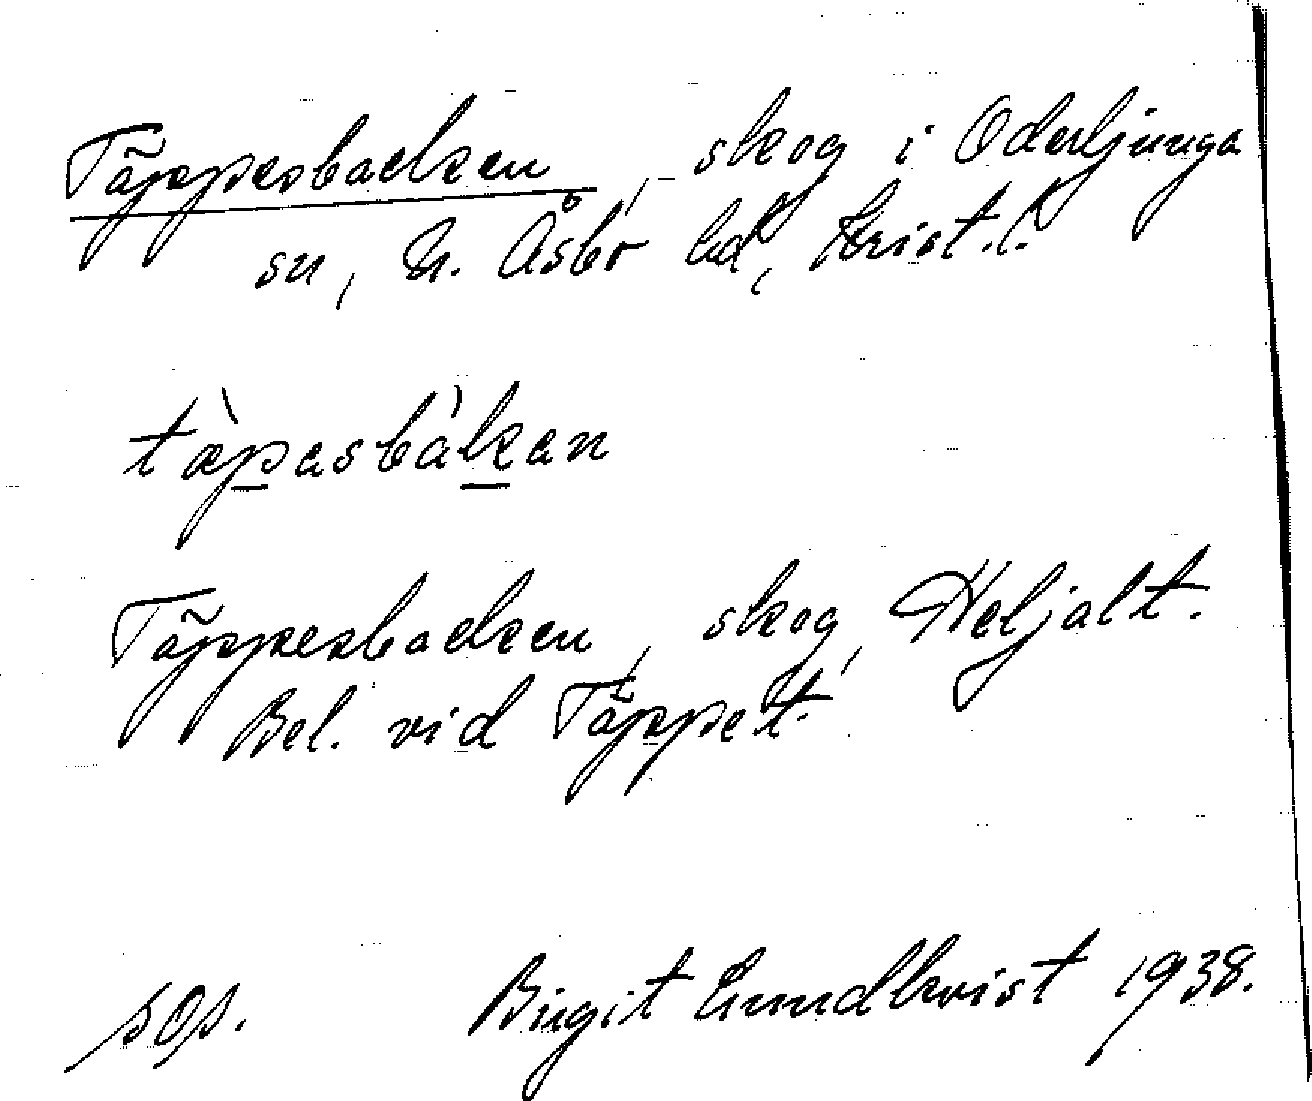 Täppesbacken, skog i Oderljunga
sn, N. Åsbo hd, Krist. l.
tæ̀pasbákan
Täppesbacken, skog, Heljalt.
Bel. vid Täppet.
sOs. Birgit Lundkvist 1938.